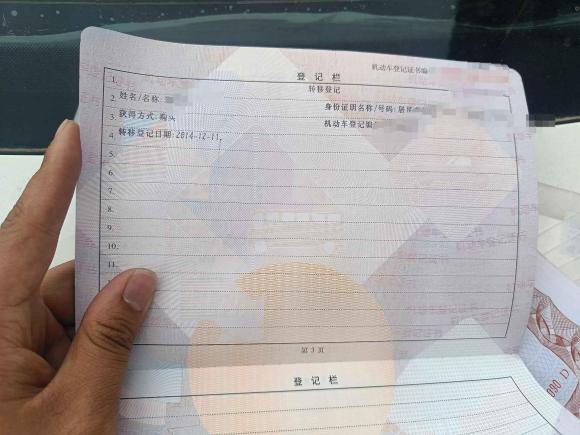 机动车登记证书编
登记栏
1. 转移登记
2. 姓名/名称: 身份证明名称/号码: 居民
3. 获得方式:购买 机动车登记编
4. 转移登记日期:2014-12-11
5.
6.
7.
8.
9.
10.
11.
第 3 页
登记栏
090 D